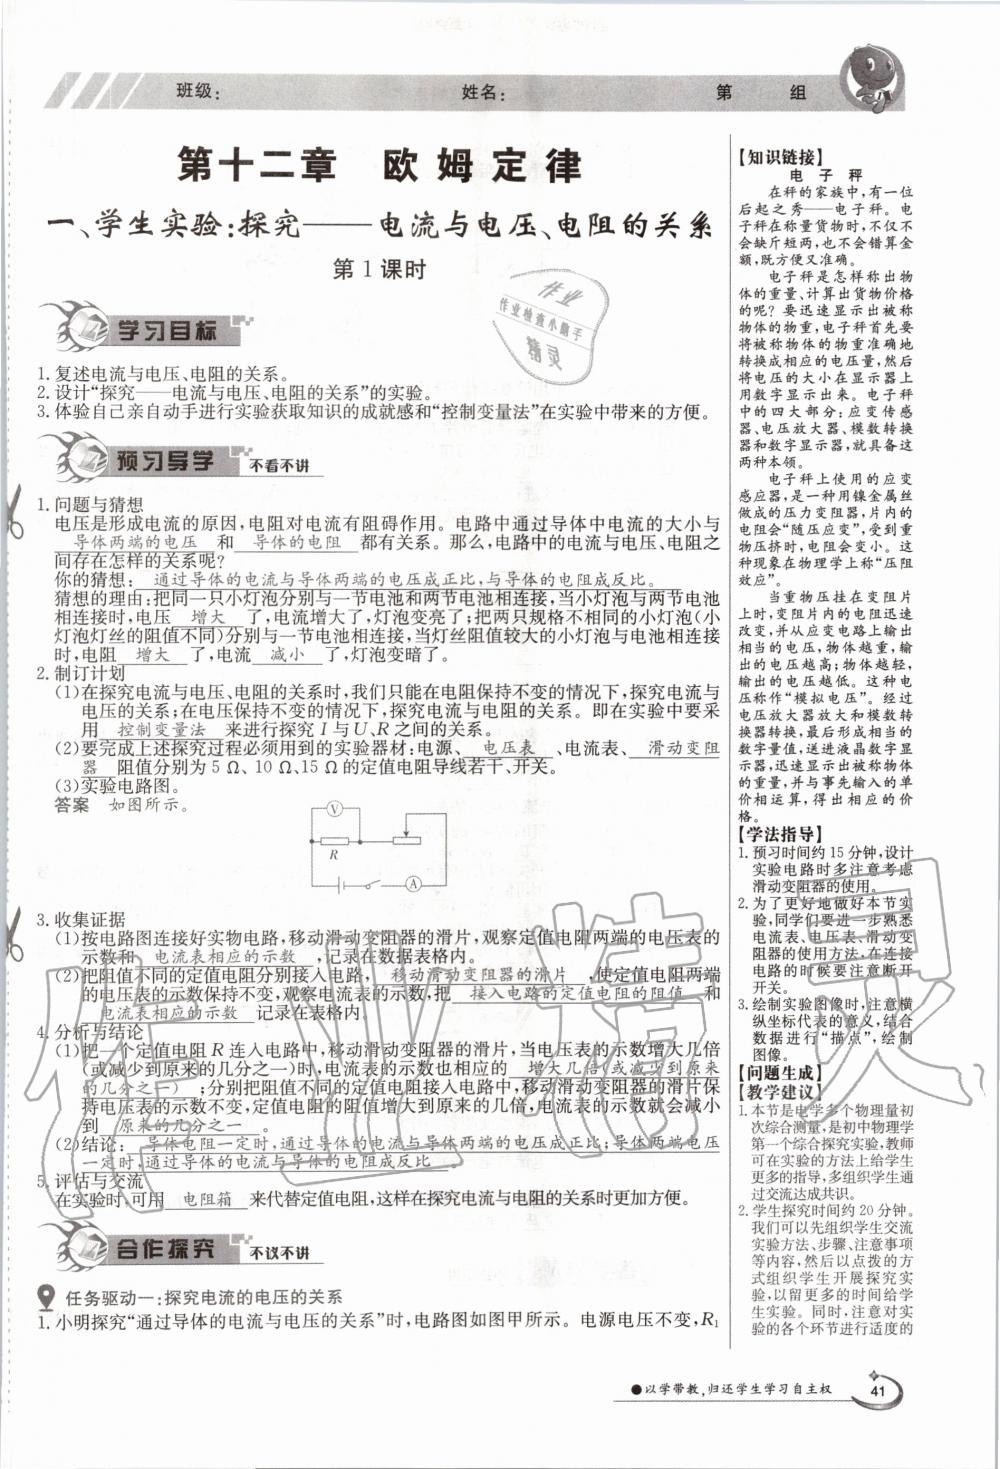 班级：
姓名：
第 组
第十二章 欧姆定律
一、学生实验：探究——电流与电压、电阻的关系
第1课时
学习目标
1. 复述电流与电压、电阻的关系。
2. 设计“探究——电流与电压、电阻的关系”的实验。
3. 体验自己亲自动手进行实验获取知识的成就感和“控制变量法”在实验中带来的方便。
预习导学 不看不讲
1. 问题与猜想
电压是形成电流的原因，电阻对电流有阻碍作用。电路中通过导体中电流的大小与
导体两端的电压 和 导体的电阻 都有关系。那么，电路中的电流与电压、电阻之
间存在怎样的关系呢？
你的猜想：通过导体的电流与导体两端的电压成正比，与导体的电阻成反比。
猜想的理由：把同一只小灯泡分别与一节电池和两节电池相连接，当小灯泡与两节电池
相连接时，电压 增大 了，电流增大了，灯泡变亮了；把两只规格不相同的小灯泡（小
灯泡灯丝的阻值不同）分别与一节电池相连接，当灯丝阻值较大的小灯泡与电池相连接
时，电阻 增大 了，电流 减小 了，灯泡变暗了。
2. 制订计划
（1）在探究电流与电压、电阻的关系时，我们只能在电阻保持不变的情况下，探究电流与
电压的关系；在电压保持不变的情况下，探究电流与电阻的关系。即在实验中要采
用 控制变量法 来进行探究 I 与 U、R 之间的关系。
（2）要完成上述探究过程必须用到的实验器材：电源、 电压表 、电流表、 滑动变阻
器 阻值分别为 5 Ω、10 Ω、15 Ω 的定值电阻导线若干、开关。
（3）实验电路图。
答案 如图所示。
V
R
A
3. 收集证据
（1）按电路图连接好实物电路，移动滑动变阻器的滑片，观察定值电阻两端的电压表的
示数和 电流表相应的示数 ，记录在数据表格内。
（2）把阻值不同的定值电阻分别接入电路， 移动滑动变阻器的滑片 ，使定值电阻两端
的电压表的示数保持不变，观察电流表的示数，把 接入电路的定值电阻的阻值 和
电流表相应的示数 记录在表格内。
4. 分析与结论
（1）把一个定值电阻 R 连入电路中，移动滑动变阻器的滑片，当电压表的示数增大几倍
（或减少到原来的几分之一）时，电流表的示数也相应的 增大几倍（或减少到原来
的几分之一） ；分别把阻值不同的定值电阻接入电路中，移动滑动变阻器的滑片保
持电压表的示数不变，定值电阻的阻值增大到原来的几倍，电流表的示数就会减小
到 原来的几分之一 。
（2）结论： 导体电阻一定时，通过导体的电流与导体两端的电压成正比；导体两端电压
一定时，通过导体的电流与导体的电阻成反比 。
5. 评估与交流
在实验时，可用 电阻箱 来代替定值电阻，这样在探究电流与电阻的关系时更加方便。
合作探究 不议不讲
任务驱动一：探究电流的电压的关系
1. 小明探究“通过导体的电流与电压的关系”时，电路图如图甲所示。电源电压不变，R1
【知识链接】
电子秤
在秤的家族中，有一位
后起之秀——电子秤。电
子秤在称量货物时，不仅不
会缺斤短两，也不会错算金
额，既方便又准确。
电子秤是怎样称出物
体的重量、计算出货物价格
的呢？要迅速显示出被称
物体的物重，电子秤首先要
将被称物体的物重准确地
转换成相应的电压量，然后
将电压的大小在显示器上
用数字显示出来。电子秤
中的四大部分：应变传感
器、电压放大器、模数转换
器和数字显示器，就具备这
两种本领。
电子秤上使用的应变
感应器，是一种用镍金属丝
做成的压力变阻器，片内的
电阻会“随压应变”，受到重
物压挤时，电阻会变小。这
种现象在物理学上称“压阻
效应”。
当重物压挂在变阻片
上时，变阻片内的电阻迅速
改变，并从应变电路上输出
相当的电压，物体越重，输
出的电压越高；物体越轻，
输出的电压越低。这种电
压称作“模拟电压”。经过
电压放大器放大和模数转
换器转换，最后形成相当的
数字量值，送进液晶数字显
示器，迅速显示出被称物体
的重量，并与事先输入的单
价相运算，得出相应的价
格。
【学法指导】
1. 预习时间约15分钟，设计
实验电路时多注意考虑
滑动变阻器的使用。
2. 为了更好地做好本节实
验，同学们要进一步熟悉
电流表、电压表、滑动变
阻器的使用方法，在连接
电路的时候要注意断开
开关。
3. 绘制实验图像时，注意横
纵坐标代表的意义，结合
数据进行“描点”，绘制
图像。
【问题生成】
【教学建议】
1. 本节是电学多个物理量初
次综合测量，是初中物理学
第一个综合探究实验，教师
可在实验的方法上给学生
更多的指导，多组织学生通
过交流达成共识。
2. 学生探究时间约20分钟。
我们可以先组织学生交流
实验方法、步骤、注意事项
等内容，然后以点拨的方
式组织学生开展探究实
验，以留更多的时间给学
生实验。同时，注意对实
验的各个环节进行适度的
●以学带教，归还学生学习自主权
41
作业
作业检查小助手
精灵
作业精灵